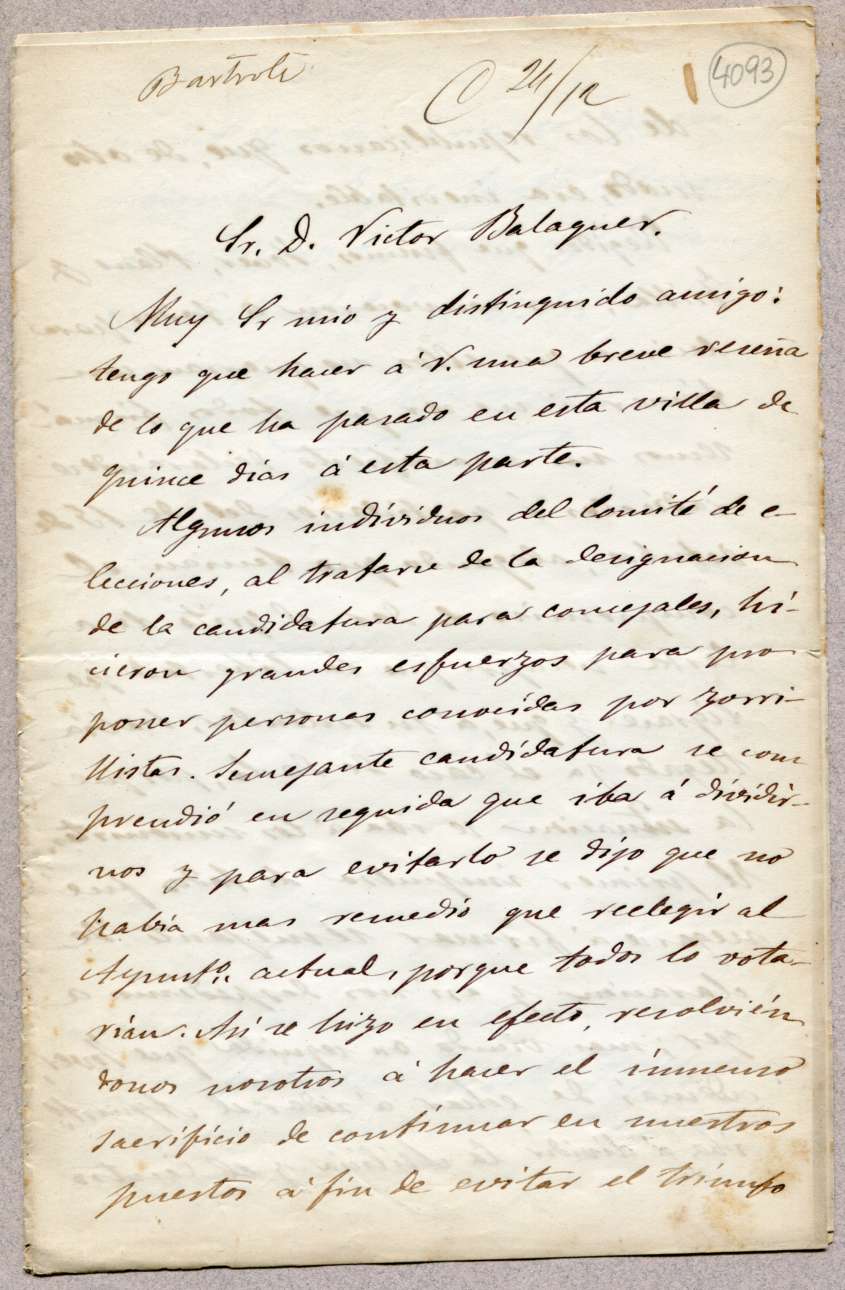 Bartroli
C 24/12
4093
Sr. D. Victor Balaguer.
Muy Sr mio y distinguido amigo:
tengo que hacer á V. una breve reseña
de lo que ha pasado en esta villa de
quince dias á esta parte.
Algunos individuos del Comité de e-
lecciones, al tratarse de la designacion
de la candidatura para concejales, hi-
cieron grandes esfuerzos para pro
poner personas conocidas por zorri-
llistas. Semejante candidatura se com
prendió en seguida que iba á dividir-
nos y para evitarlo se dijo que no
habia mas remedio que reelegir al
Ayunto. actual, porque todos lo vota-
rían. Así se hizo en efecto, resolvién
donos nosotros á hacer el inmenso
sacrificio de continuar en nuestros
puestos á fin de evitar el triunfo